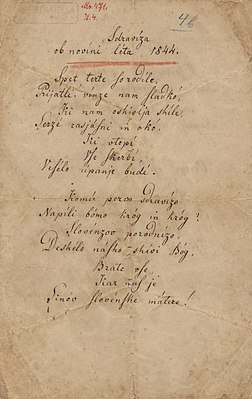 Ms. 471.
N. 4.
4b
Sdravíza
ob novini léta 1844.
Spet terteforodile,
Prijátli! vínze nam fladkó,
Ki nam oshivlja shíle,
Serzé rasjáfni in oko.
Ki vtopí
Vse fkerbi,
Vefélo úpanje budí.
Komú pervo sdravízo
Napili bómo króg in króg?
Slovénzov porodnízo,
Deshélo násho shívi Bóg,
Brate vse,
Kar naf je
Sinóv flovénfhe mátere!